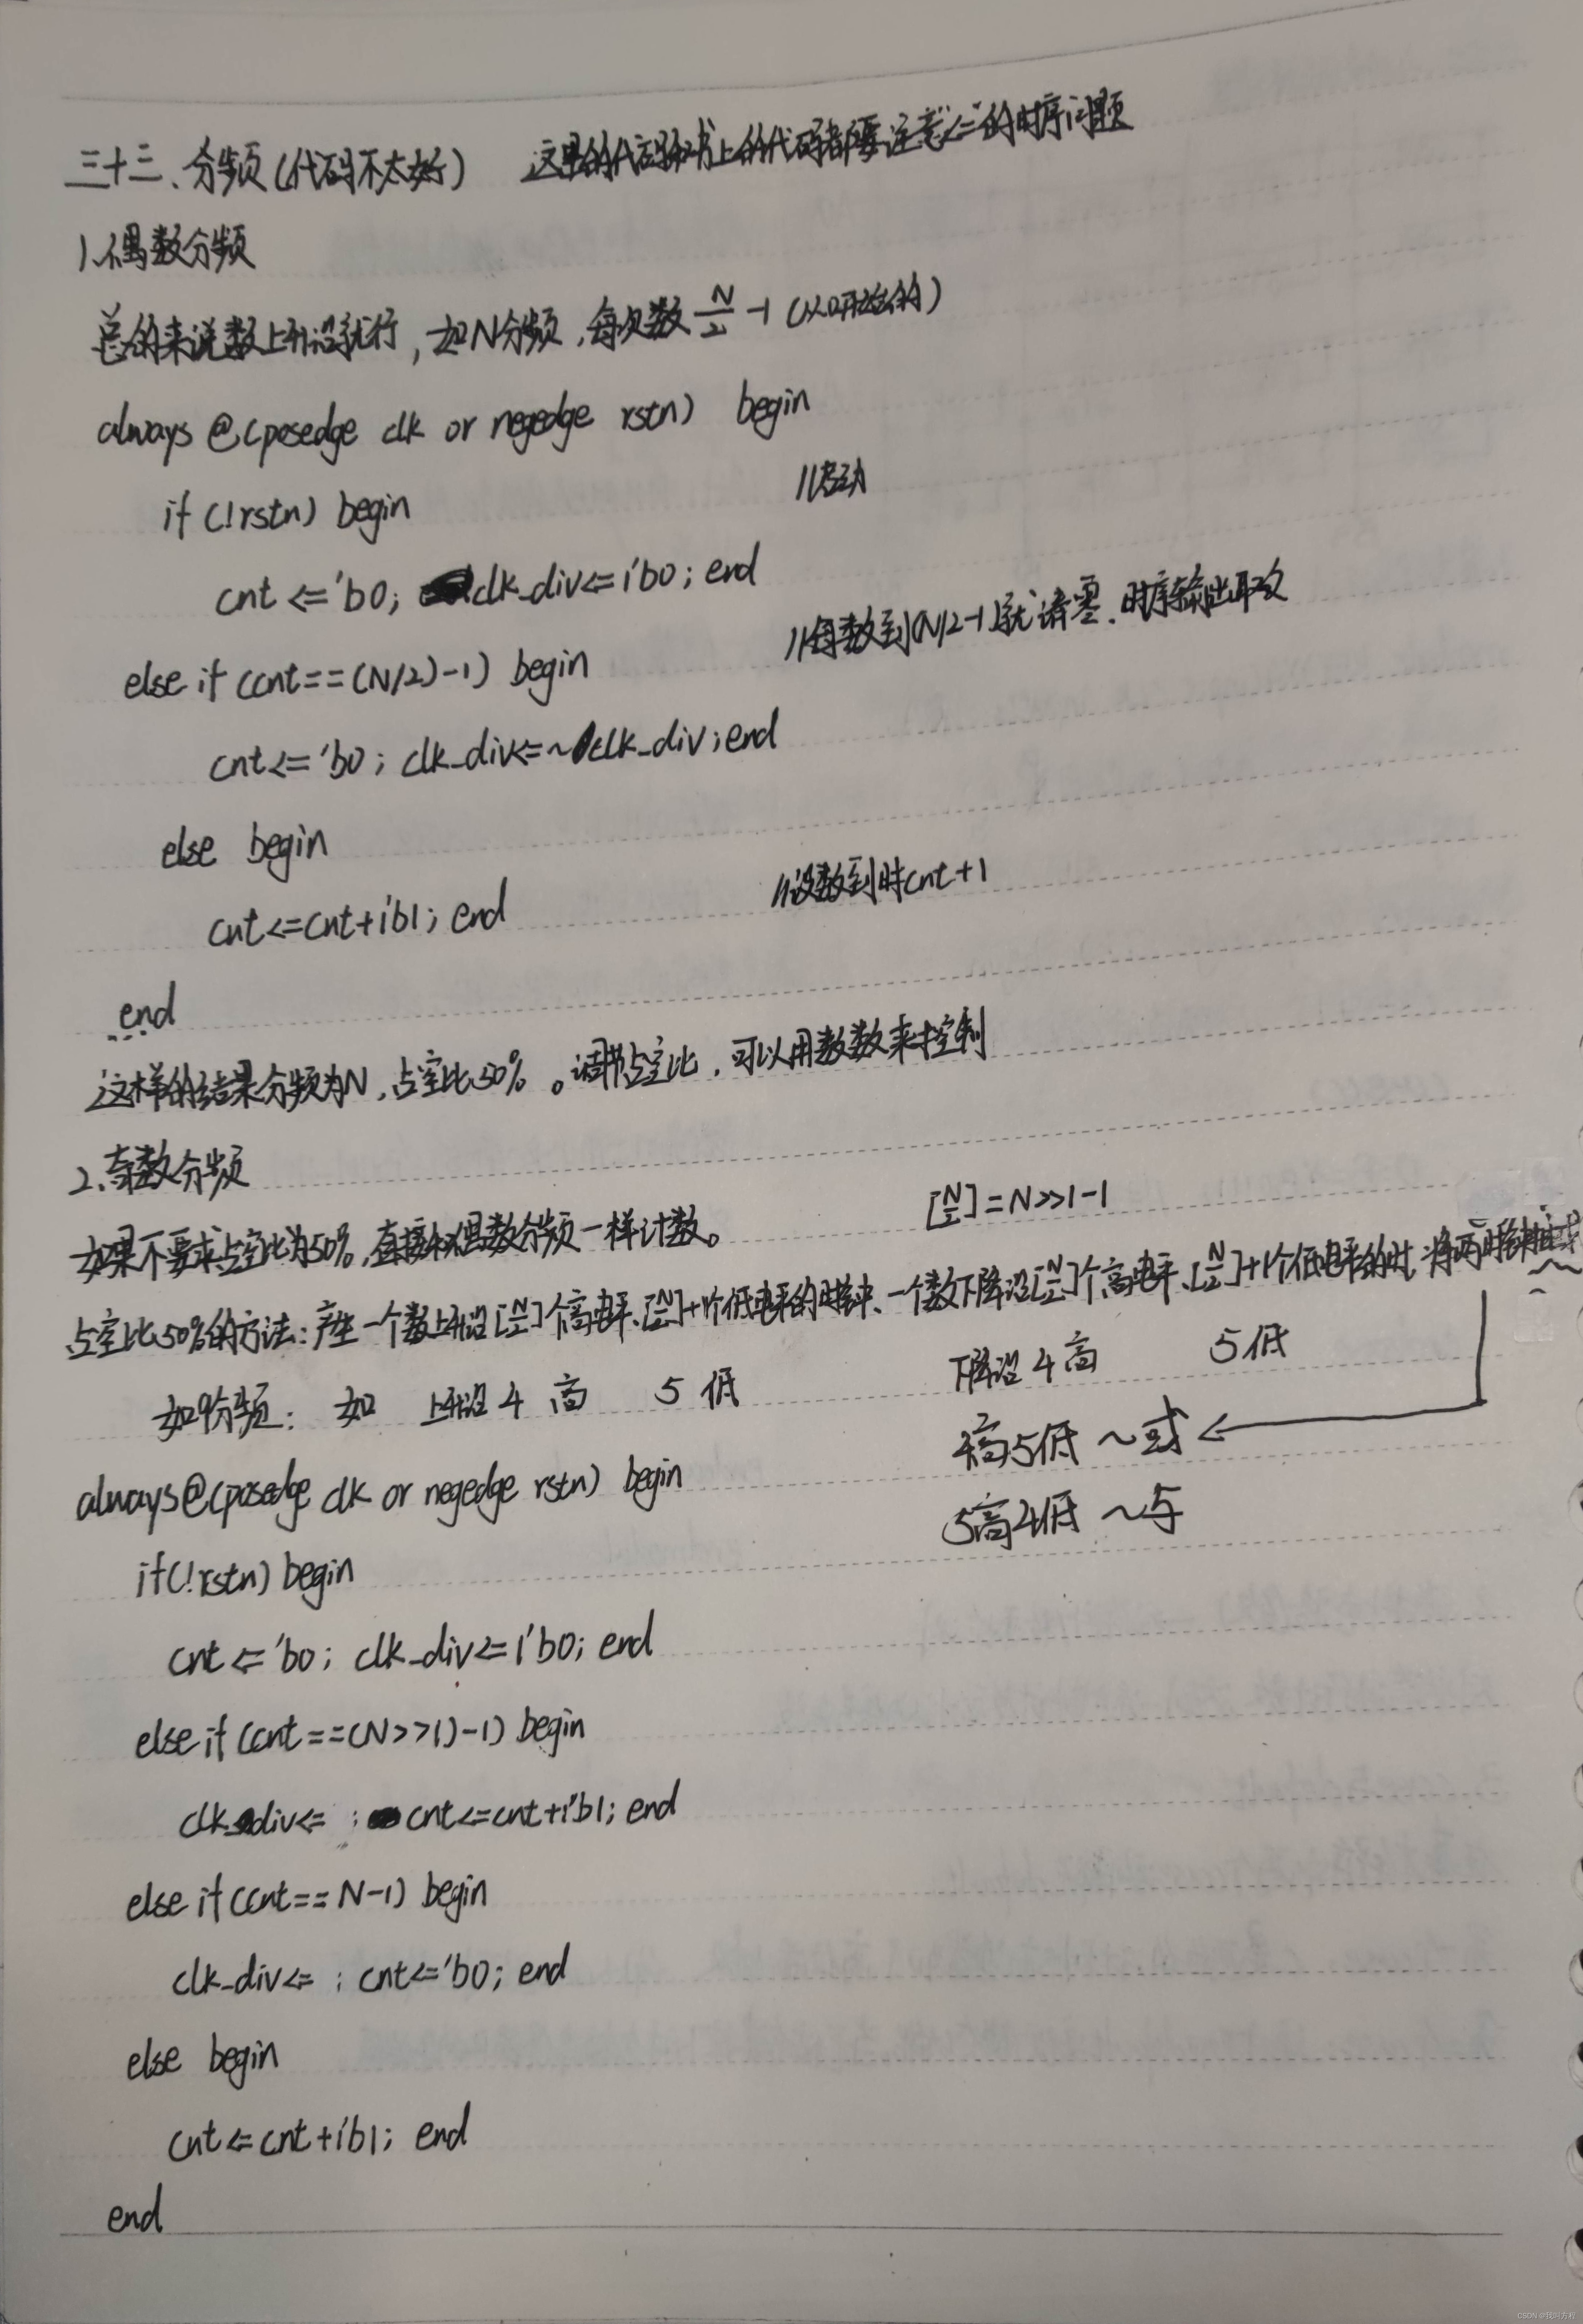 三十三、分频(代码不太好) 这里的代码和书上的代码都要注意"<="的时序问题
1、偶数分频
总的来说数上升沿就行,如N分频,每次数 N/2 -1 (从0开始的)
always @(posedge clk or negedge rstn) begin
if (!rstn) begin
cnt <= 'b0; clk_div <= 1'b0; end
else if (cnt==(N/2)-1) begin //每数到(N/2-1)就清零,时序输出取反
cnt <= 'b0; clk_div<=~clk_div; end
else begin
cnt<=cnt+1'b1; end //没数到时cnt+1
end
这样的结果分频为N,占空比50%。调节占空比,可以用数数来控制
2、奇数分频
如果不要求占空比为50%,直接和偶数分频一样计数。 [N/2]=N>>1-1
占空比50%的方法:产生一个数上升沿[N/2]个高电平、[N/2]+1个低电平的时钟、一个数下降沿[N/2]个高电平、[N/2]+1个低电平的时,将两时钟相或
如9分频: 如 上升沿4 高 5 低 下降沿4高 5低
4高5低 ~或
always@(posedge clk or negedge rstn) begin
5高4低 ~与
if(!rstn) begin
cnt <= 'b0; clk_div<=1'b0; end
else if (cnt==(N>>1)-1) begin
clk_div<= ; cnt<=cnt+1'b1; end
else if (cnt==N-1) begin
clk_div<= ; cnt<='b0; end
else begin
cnt<=cnt+1'b1; end
end
CSDN @我叫方程